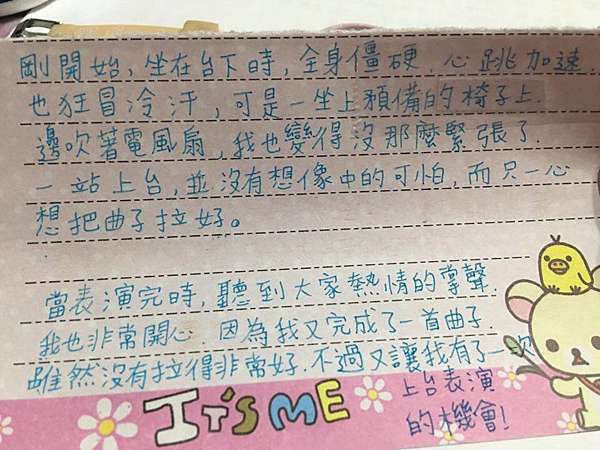 剛開始，坐在台下時，全身僵硬 心跳加速.
也狂冒冷汗，可是一坐上預備的椅子上.
邊吹著電風扇，我也變得沒那麼緊張了.
一站上台，並沒有想像中的可怕，而只一心
想把曲子拉好。
當表演完時，聽到大家熱情的掌聲.
我也非常開心. 因為我又完成了一首曲子.
雖然沒有拉得非常好. 不過又讓我有了一次
上台表演
的機會!
IT'S ME